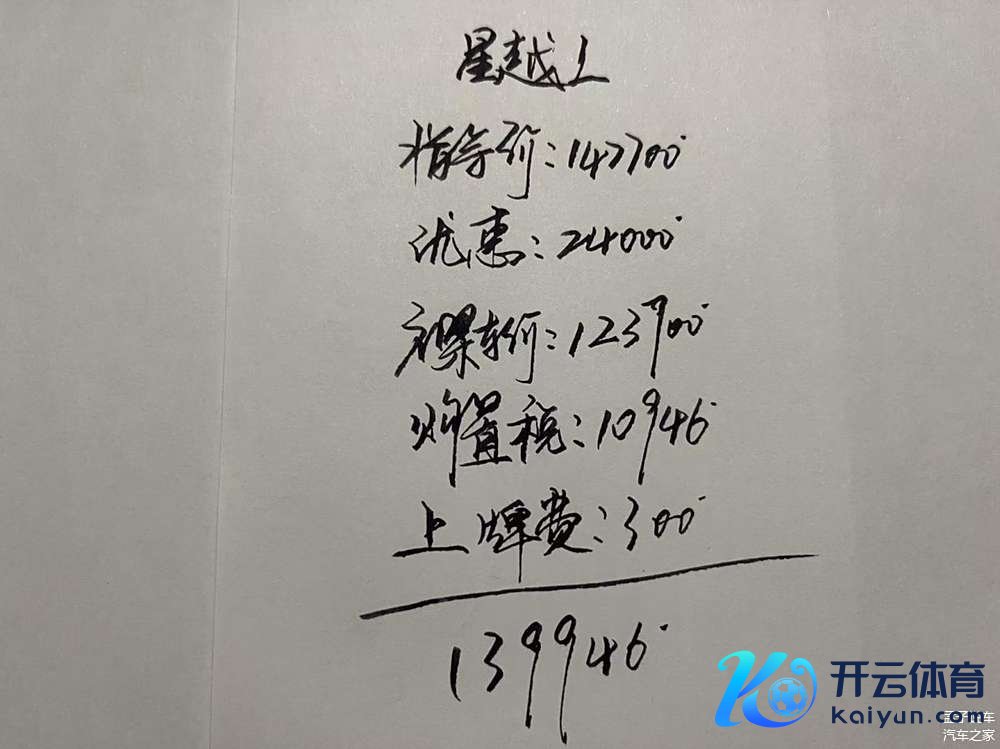 星越L
指导价：147700
优惠：24000
裸车价：123700
购置税：10946
上牌费：300
139946
开云体育
kaiyun.com
汽车之家